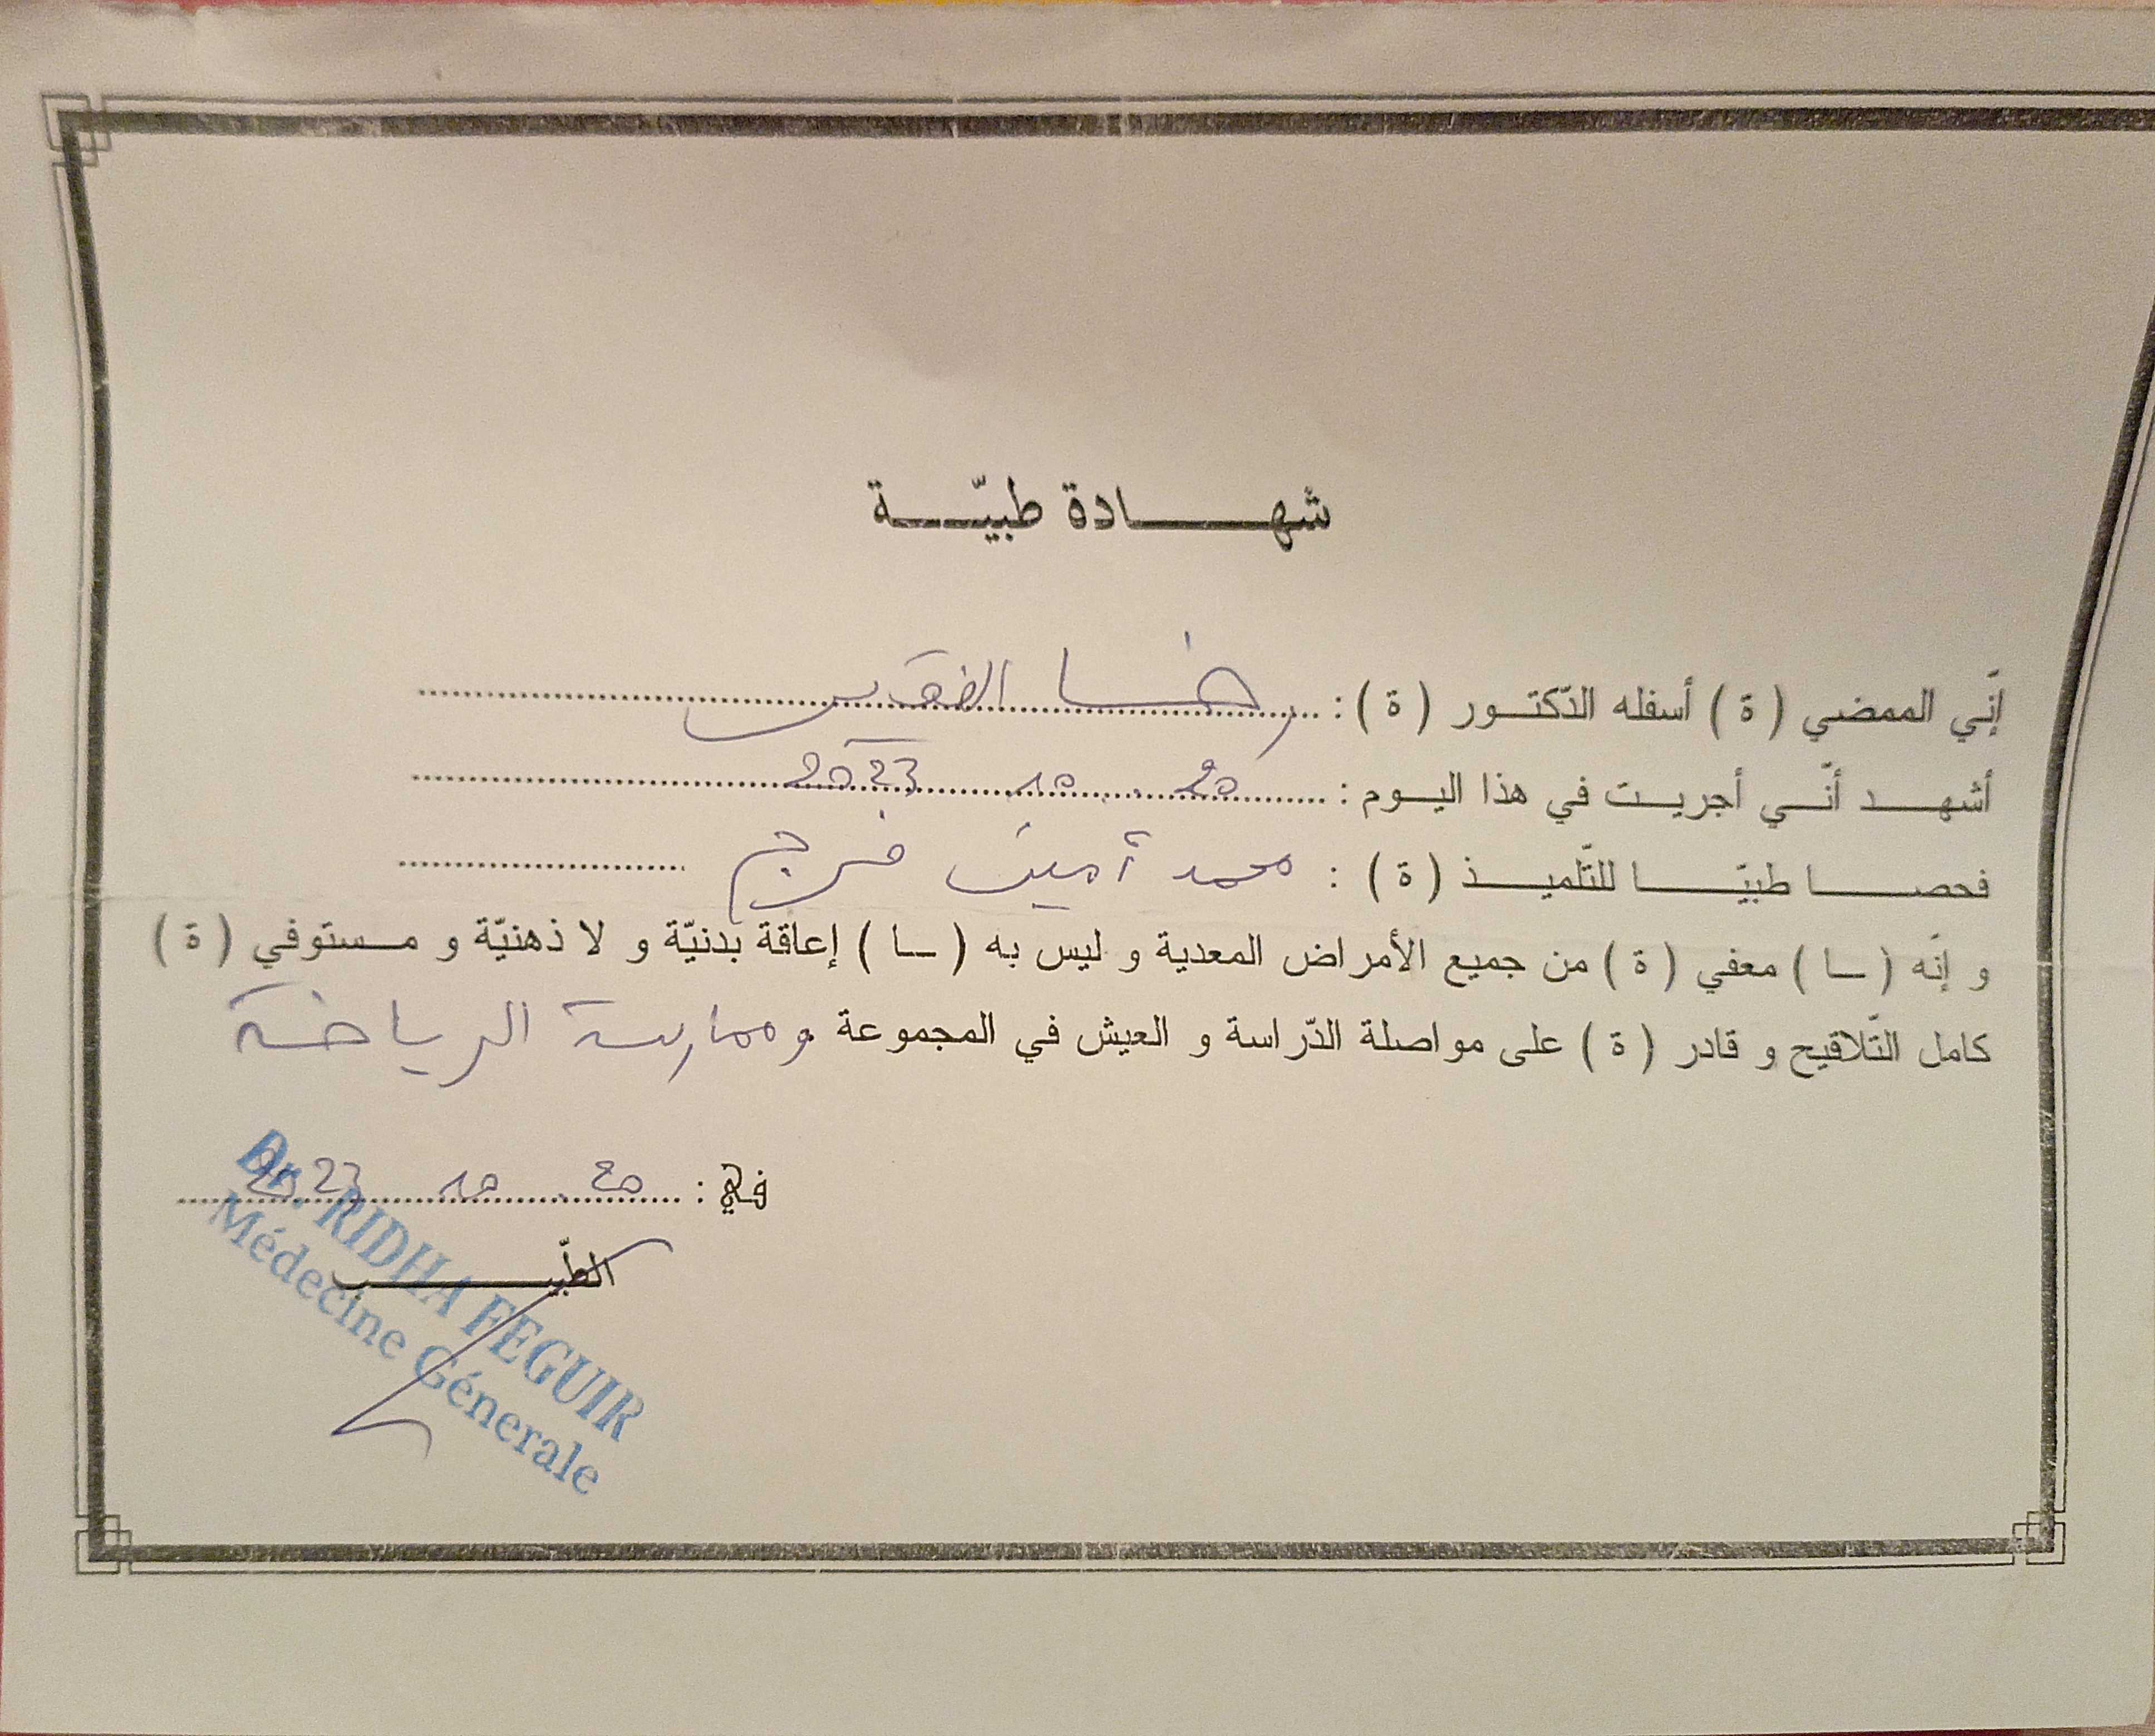 شهادة طبيّة
إنّي الممضي ( ة ) أسفله الدّكتور ( ة ) : رضا الفقير
أشهد أنّي أجريت في هذا اليوم : 20 10 2023
فحصا طبيّا للتّلميذ ( ة ) : محمد أمين فرج
و إنّه ( ـا ) معفي ( ة ) من جميع الأمراض المعدية و ليس به ( ـا ) إعاقة بدنيّة و لا ذهنيّة و مستوفي ( ة )
كامل التّلاقيح و قادر ( ة ) على مواصلة الدّراسة و العيش في المجموعة وممارسة الرياضة
في : 20 10 2023
الطّبيب
Dr. RIDHA FEGUIR
Médecine Génerale